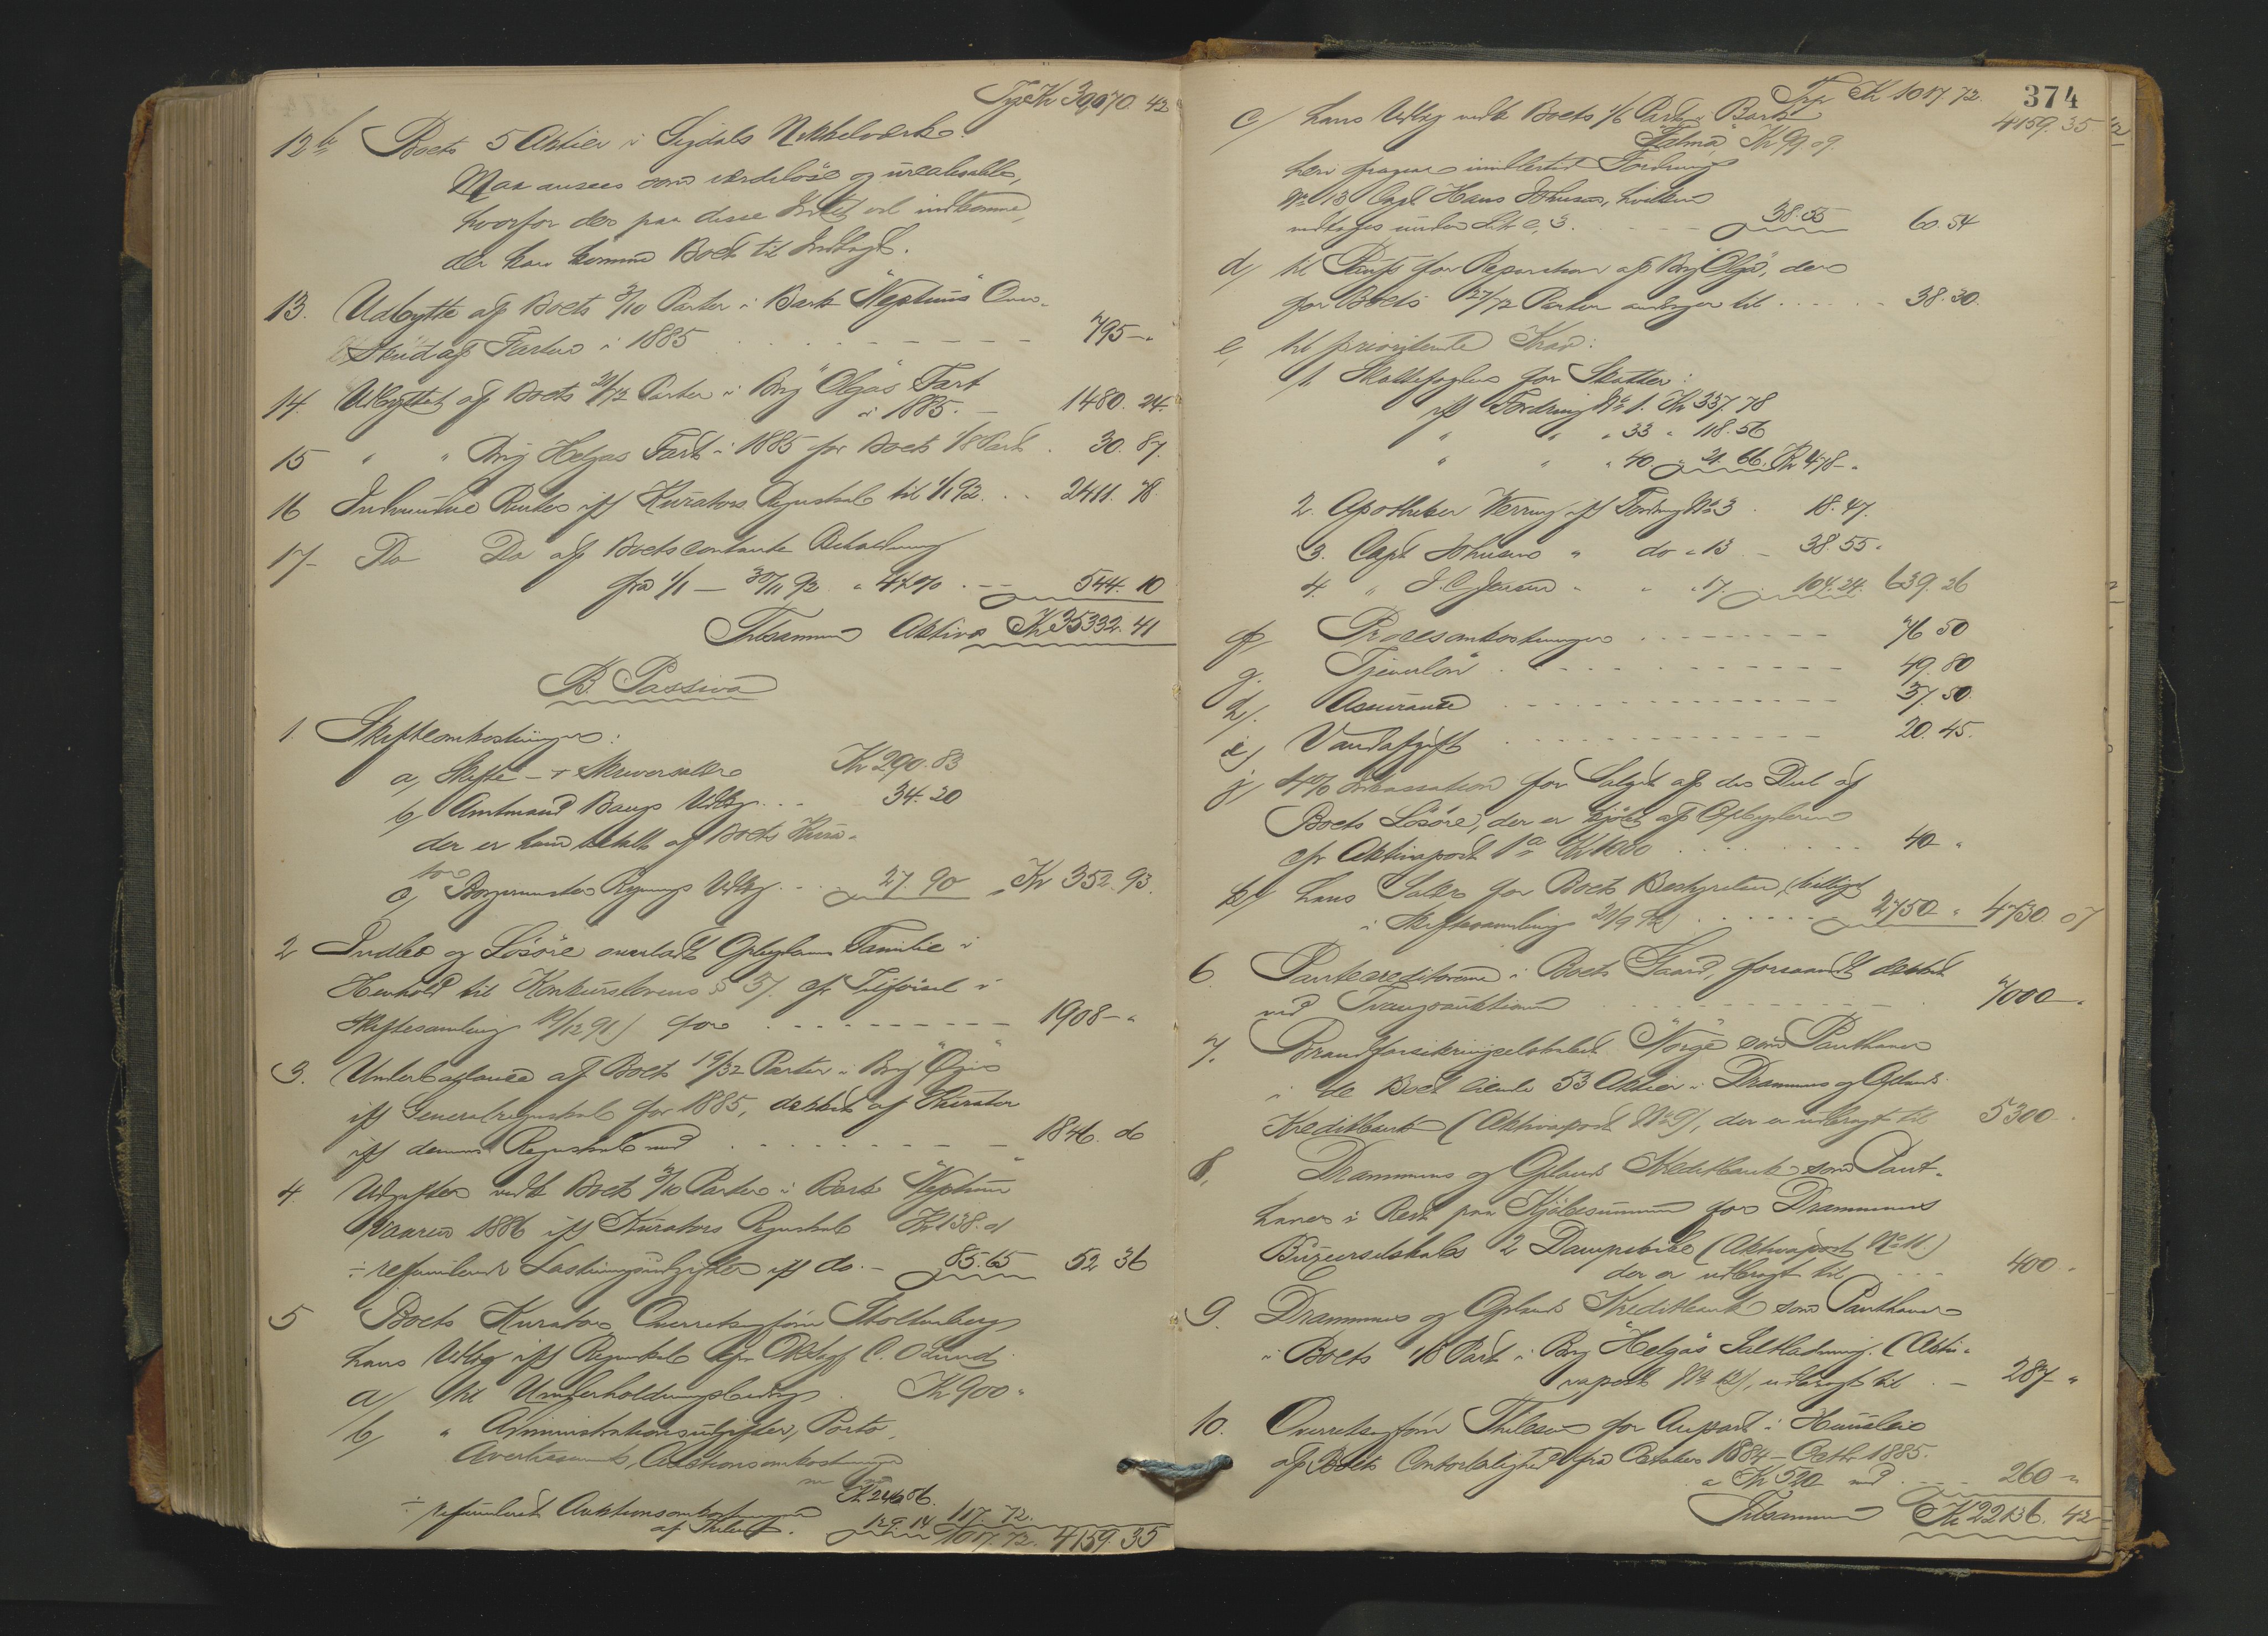 Trp Kr 30,070. 42
12 b Boets 5 Aktier i Sigdals Nikkelværk.
Maa ansees som værdiløse og urealisable,
hvorfor der paa disse Intet vil indkomme,
der kan komme Boet til Indtægt.
13. Udbytte af Boets 3/10 Parter i Bark "Neptuns" Over-
skud af Farten i 1885 795 - "
14. Udbyttet af Boets 21/72 Parter i Brig "Olgas" Fart
i 1885. - 1480. 24.
15 " " Brig Helgas Fart i 1885 for Boets 1/8 Part . 30. 87.
16 Indvundne Renter iflf Kurators Regnskab til 1/1 92. . . 2411. 78.
17 - Do Do af Boets contante Beholdning
fra 1/1 - 30/11 92 a 4% 544. 10
Tilsammen Aktiva Kr 35332. 41
B. Passiva
1. Skifteomkostninger:
a, Skifte - + Skriversalær Kr 290. 83
b, Amtmand Bangs Udlæg . . . 34. 20
der er ham betalt af Boets Kura-
tor
c, Borgermester Rynings Udlæg . . 27. 90 " Kr 352. 93.
2 Indbo og Løsøre overladt Opbyderens Familie i
Henhold til Konkurslovens § 37. cfr Tilførsel i
Skiftesamling 19/12 91) for 1908 - "
3. Underbalance af Boets 19/32 Parter i Brig "Ægir"
iflf Generalregnskab for 1885, dækket af Kurator
iflf dennes Regnskab med 1846. 06
4 Udgifter vedk Boets 3/10 Parter i Bark "Neptun"
Vaaren 1886 iflf Kurators Regnskab Kr 138. 01
÷ refunderede Lastningsudgifter iflf do. - 85. 65 52 36
5 Boets Kurator Overretssagfører Stoltenberg
hans Udlæg iflf Regnskab C. O Lund,
a/ til Underholdningsbidrag . Kr 900 "
b, " Administrationsudgifter, Porto,
Avertissements, Auctionsomkostninger
m m Kr 246 86.
÷ refunderet Auktionsomkostninger 129 14 117. 72.
1017. 72. 4159. 35
374
Trp Kr 1017 72.
4159. 35
c/ hans Udlæg vedk Boets 1/6 Part i Bark
"Hilma" Kr 99 09.
heri fragaar imidlertid Fordring
No 13 Capt Hans Johnsen, hvilken
medtages under Lit e, 3. 38. 55 60. 54
d, til for Reparation af Brig "Olga", der
for Boets 27/72 Parter andrager til . . . . . 38. 30.
e, til prioriterede Krav:
1. Skattefogden for Skatter:
iflf Fordring No 1. Kr 337. 78
" " " 33 " 118. 56
" " " 40 " 21. 66. Kr 478 - "
2. Apotheker Werring iflf Fordring No 3 . 18. 47.
3. Capt Johnsen " do " 13 - 38. 55.
4. " J. C. Jensen " " " 17. 104. 24. 639. 26
f, Procesomkostninger 76 50
g. Tjenerløn 49. 80
h/. Assurance 37. 50.
i, Vandafgift 20. 45.
j, 4% Inkassation for Salget af den Del af
Boets Løsøre, der er kjøbt af Opbyderen
cfr Aktivapost 1 a Kr 1000 40 "
k/ hans Salær for Boets Bestyrelse, (billiget
i Skiftesamling 21/9 92) 2750 " 4730. 07
6. Pantecreditorerne i Boets Gaard, forsaavidt dækket
ved Tvangsauktionen 7000 - "
7. Brandforsikringselskabet "Norge" som Panthaver
i de Boet eiende 53 Aktier i Drammens og Oplands
Kreditbank (Aktivapost No 9), der er udbragt til 5300 -
8, Drammens og Oplands Kreditbank som Pant-
haver i Rest paa Kjøbesummen for Drammens
Bugserselskabs 2 Dampskibe (Aktivapost No 11.)
der er udbragt til . . . 400 -
9. Drammens og Oplands Kreditbank som Panthaver
i Boets 1/8 Part i Brig "Helgas" Saltladning. (Akti-
vapost No 12), udbragt til . - 287 - "
10. Overretssagfører Thilesen for Anpart i Husleie
af Boets Contorleilighed fra October 1884 - Octbr 1885.
a Kr 520 med . - - - 260 - "
Tilsammen Kr 22136. 42